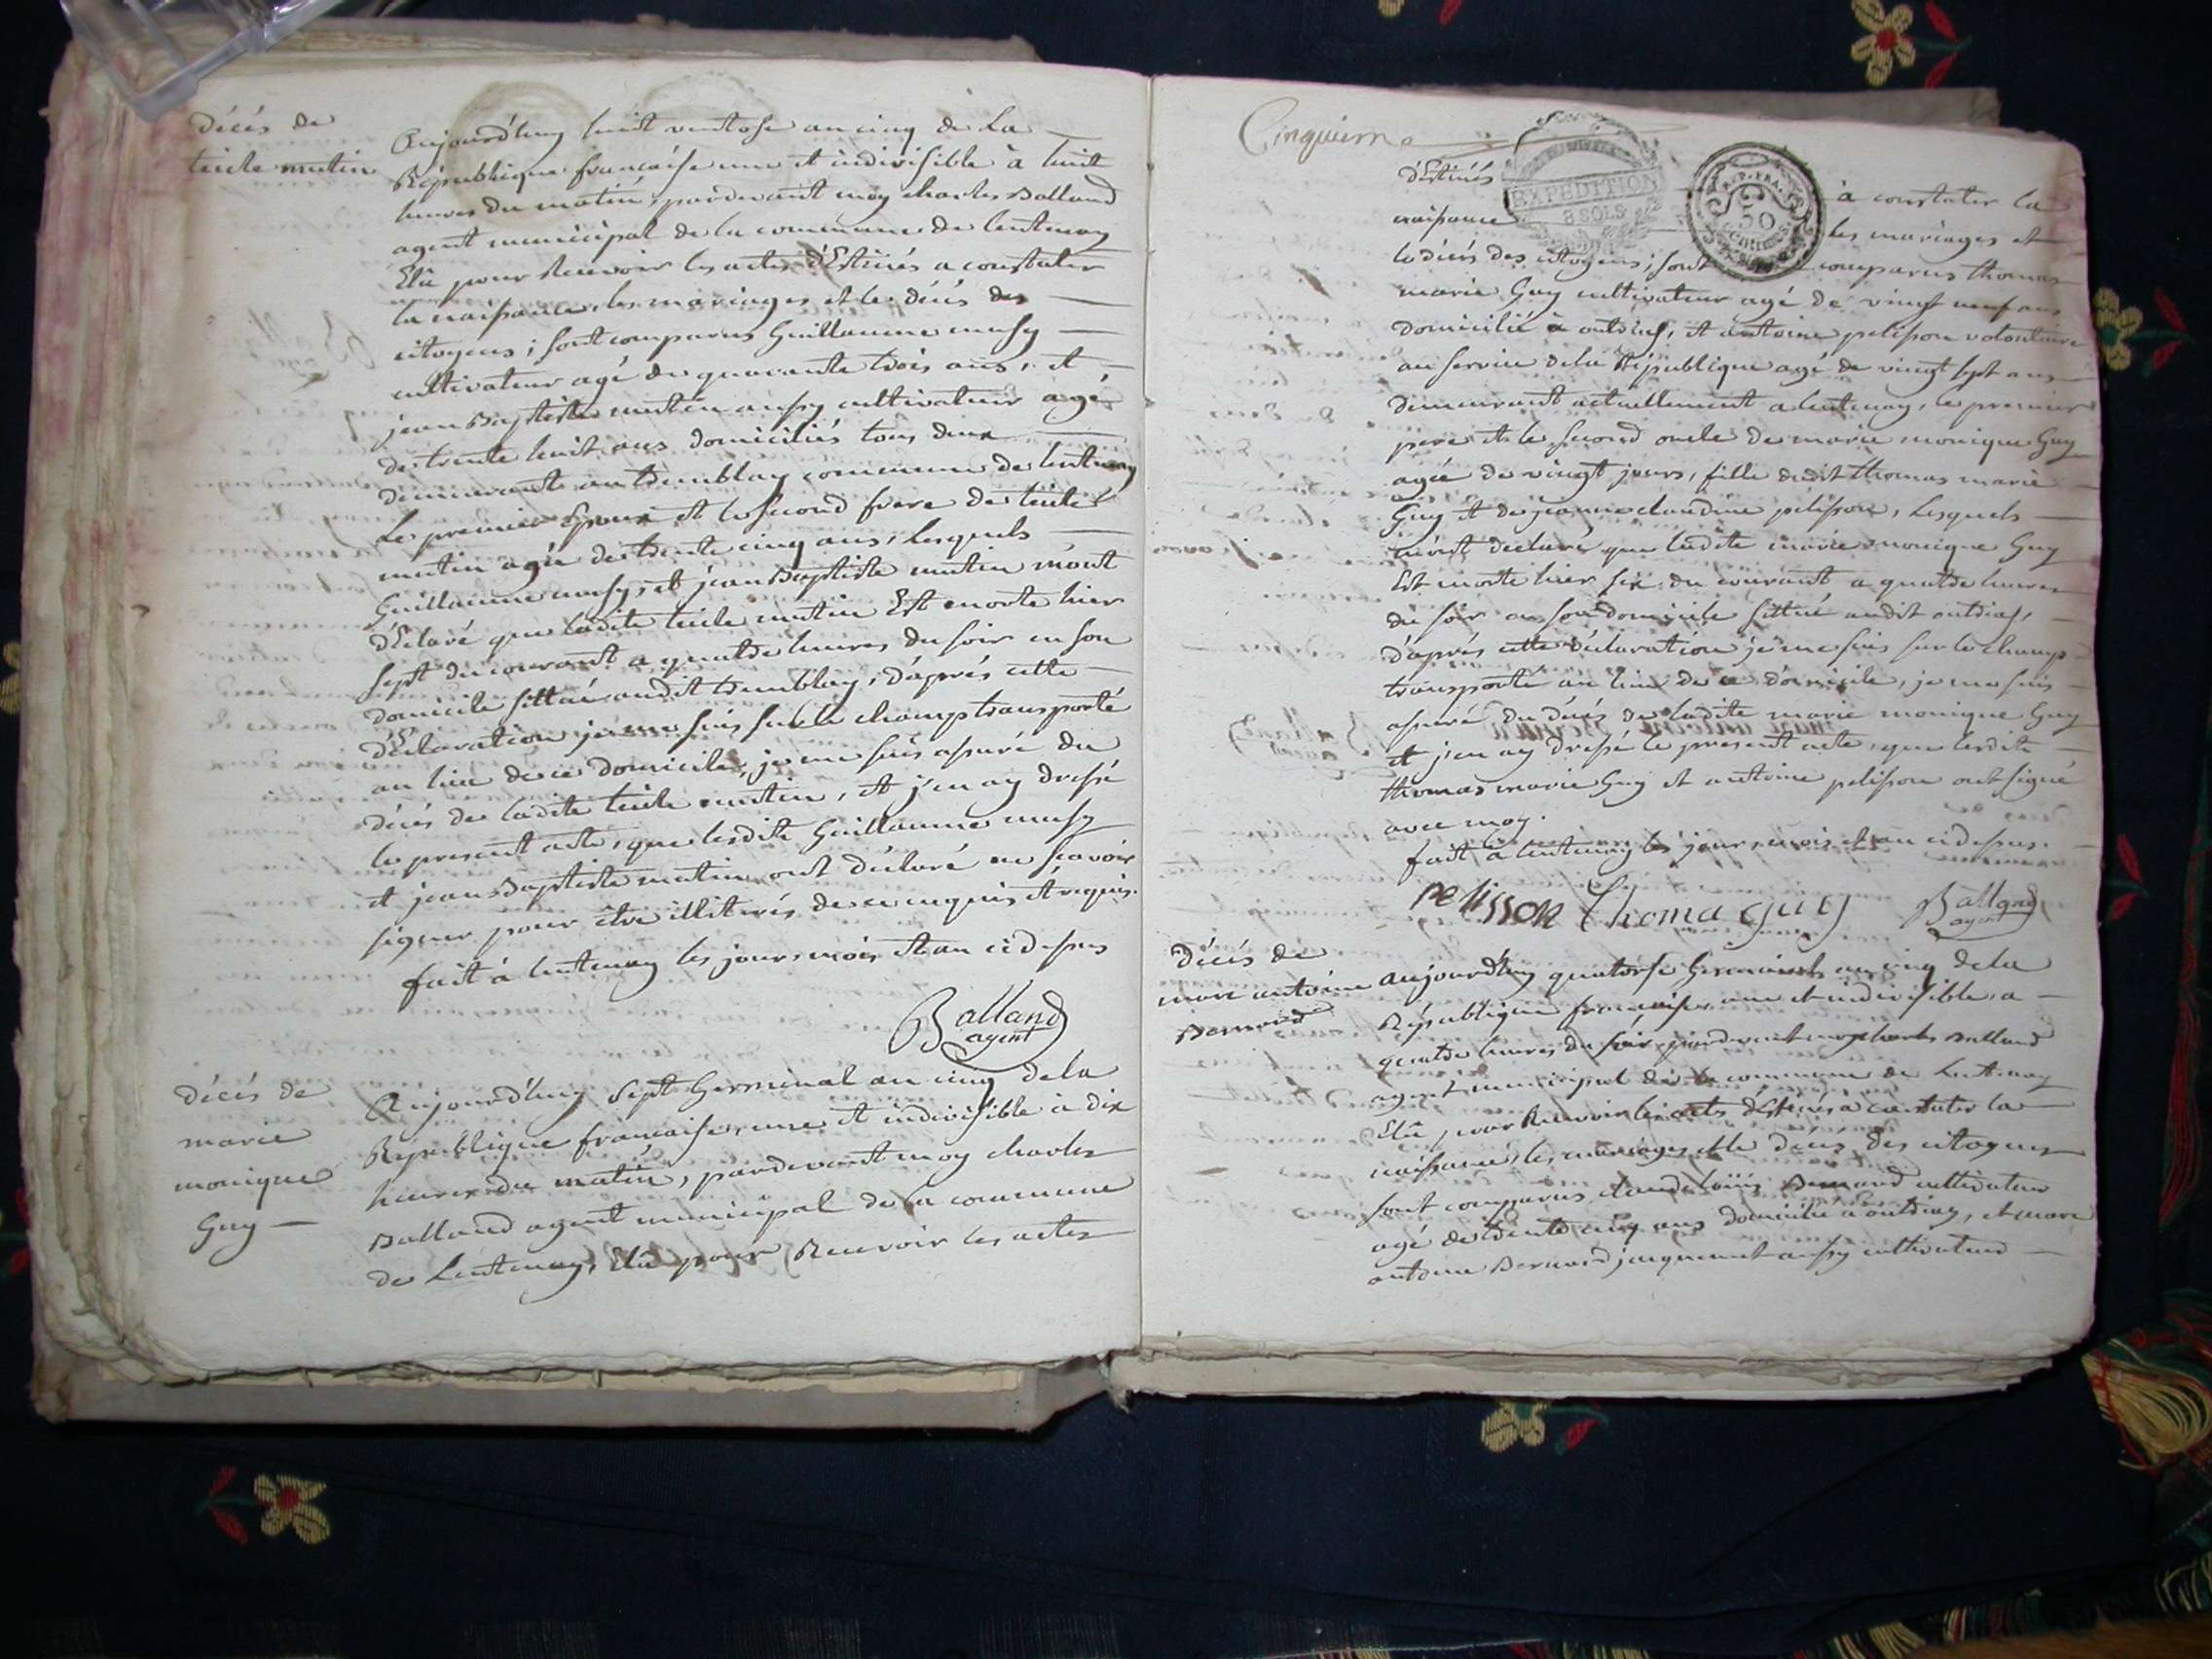 décés de
mutin
Aujourd'huy huit ventose an cinq de La
République francaise une et indivisible à huit
heures du matin, pardevant moy charles Balland
agent municipal de la commune de lentenay
Elû pour Recevoir les actes d'Estinés a constater
la naissance, les mariages et le décés des
citoyens; sont comparus Guillaume musy
cultivateur agé de quarante trois ans, et
jean Baptiste mutin aussy cultivateur agé
de trente huit ans domiciliés tous deux
demeurant au tremblay commune de lentenay
Le premier Epoux et le second frere de
mutin agée de trente cinq ans, Lesquels
Guillaume musy, et jean Baptiste mutin m'ont
d'Eclaré que ladite mutin Est morte hier
sept du courant a quatre heures du soir en son
domicile sittué audit tremblay, d'aprés cette
d'Eclaration je me suis sur le champ transporté
au lieu de ce domicile, je me suis assuré du
décés de ladite mutin, et j'en ay dressé
le present acte, que lesdits Guillaume musy
et jean Baptiste mutin ont déclaré ne scavoir
signer pour être illiterés de ce enquis et requis.
fait à lentenay les jour, mois et an ci dessus
Balland
agent
décés de
marie
monique
Guy
Aujourd'huy sept Germinal an cinq de la
République francaise, une et indivisible à dix
heures du matin, pardevant moy charles
Balland agent municipal de la commune
de Lentenay, Elû pour Recevoir les actes
Cinquieme
EXPEDITION
8 SOLS
REP. FRA.
50
CENTIMES
d'Estinés à constater la
naissance les mariages et
le décés des citoyens; sont comparus thomas
marie Guy cultivateur agé de vingt neuf ans
domicilié à outriaz, et antoine pelisson volontaire
au service de la République agé de vingt sept ans
demeurant actuellement a lentenay, le premier
pere et le second oncle de marie monique Guy
agée de vingt jours, fille dudit thomas marie
Guy et de jeanne claudine pelisson, Lesquels
m'ont declaré que ladite marie monique Guy
Est morte hier six du courant a quatre heures
du soir en son domicile sittué audit outriaz,
d'aprés cette déclaration je me suis sur le champ
transporté au lieu de ce domicile, je me suis
assuré du décés de ladite marie monique Guy
et j'en ay dressé le present acte, que lesdits
thomas marie Guy et antoine pelisson ont signé
avec moy.
fait à lentenay les jour, mois et an ci dessus.
pelisson Thoma guy Balland
agent
Décés de
marc antoine
Bernard
aujourd'huy quatorse Germinal an cinq de la
République francaise, une et indivisible, a
quatre heures du soir pardevant moy charles Balland
agent municipal de la commune de Lentenay
Elû pour Recevoir les actes d'Estinés a constater la
naissance, les mariages et le décés des citoyens
sont comparus claude Bernard cultivateur
agé de trente cinq ans domicilié a outriaz, et marc
antoine Bernard jacquemet aussy cultivateur